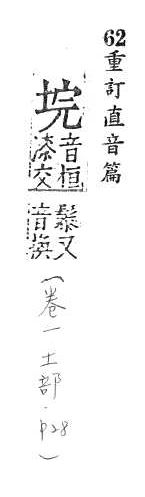 62重訂直音篇
垸
音桓
漆交
髹又
音換
(卷一土部·p28)